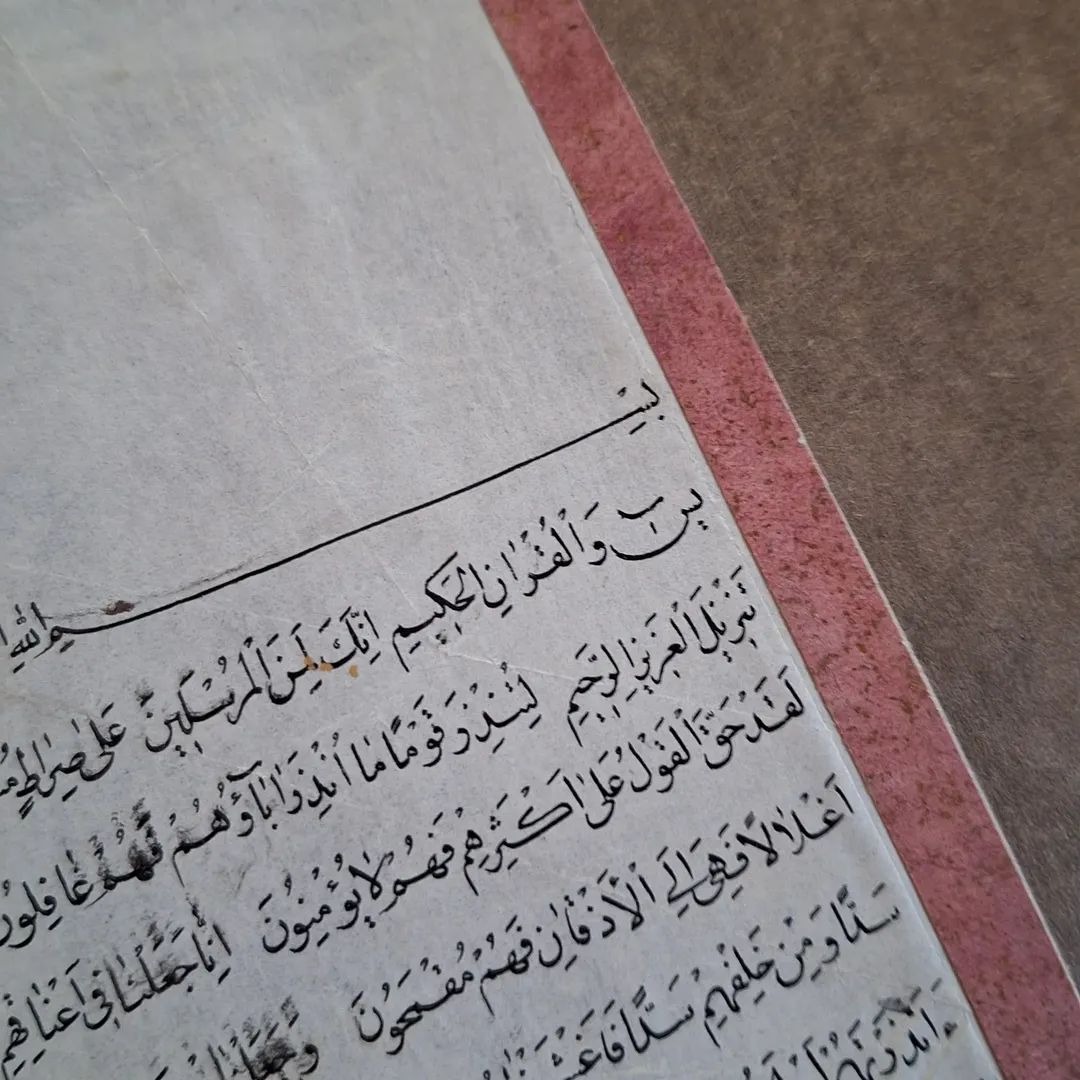 بِسْــــــمِ اللهِ
يٰسٓ وَالْقُرْاٰنِ الْحَكِيمِ اِنَّكَ لَمِنَ الْمُرْسَلِينَ عَلٰى صِرَاطٍ
تَنْزِيلَ الْعَزِيزِ الرَّحِيمِ لِتُنْذِرَ قَوْمًا مٰا اُنْذِرَ اٰبٰاؤُهُمْ فَهُمْ غٰافِلُونَ
لَقَدْ حَقَّ الْقَوْلُ عَلٰى اَكْثَرِهِمْ فَهُمْ لٰا يُؤْمِنُونَ اِنّٰا جَعَلْنٰا فِى اَعْنٰاقِهِمْ
اَغْلٰالًا فَهِىَ اِلَى الْاَذْقٰانِ فَهُمْ مُقْمَحُونَ وَجَعَلْنٰا
سَدًّا وَمِنْ خَلْفِهِمْ سَدًّا فَاَغْشَيْنٰا